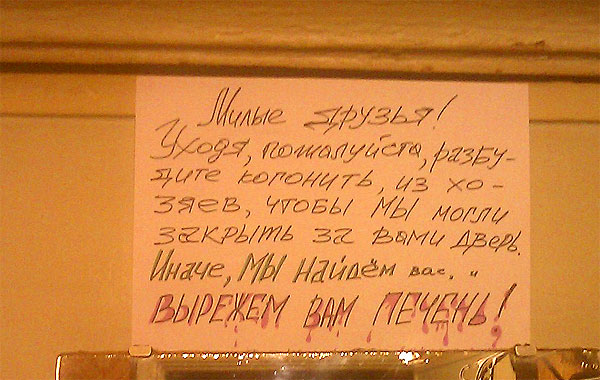 Милые друзья!
Уходя, пожалуйста, разбу-
дите когонить, из хо-
зяев, чтобы мы могли
закрыть за вами дверь.
Иначе, мы найдём вас. и
ВЫРЕЖЕМ ВАМ ПЕЧЕНЬ!